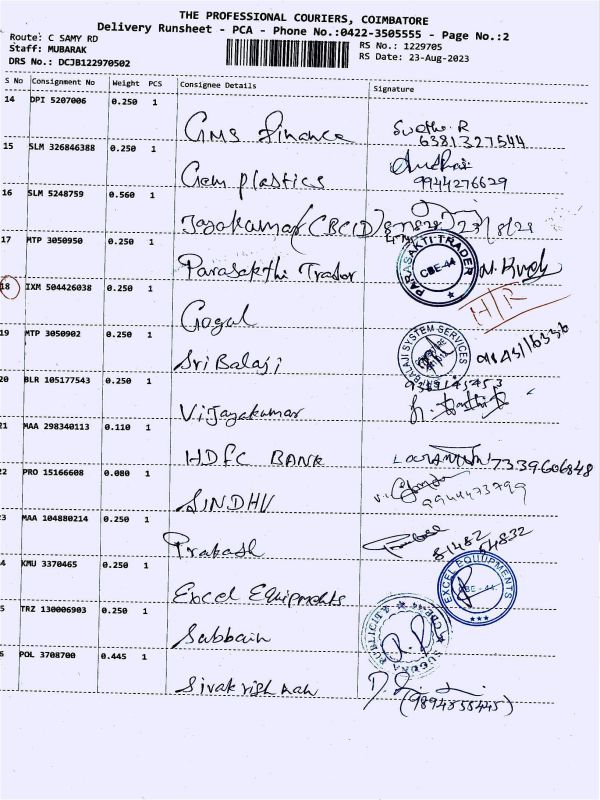 THE PROFESSIONAL COURIERS, COIMBATORE
Delivery Runsheet - PCA - Phone No.:0422-3505555 - Page No.:2
Route: C SAMY RD
Staff: MUBARAK
DRS No.: DCJB122970502
RS No.: 1229705
RS Date: 23-Aug-2023
S No Consignment No Weight PCS Consignee Details Signature
14 DPI 5207006 0.250 1
GMS Finance
6381327544
15 SLM 326846388 0.250 1
Gem plastics
9944276629
16 SLM 5248759 0.560 1
Jayakumar (BCID)
17 MTP 3050950 0.250 1
Parasakthi Trader
PARASAKTI TRADER
CBE-44
18 IXM 504426038 0.250 1
Gogul
H/R
19 MTP 3050902 0.250 1
Sri Balaji
BALAJI SYSTEM SERVICES
20 BLR 105177543 0.250 1
Vijayakumar
21 MAA 298340113 0.110 1
HDFC BANK
7339606848
22 PRO 15166608 0.080 1
SINDHU
9944473799
3 MAA 104880214 0.250 1
Prakash
81482 54832
4 KMU 3370465 0.250 1
Excel Equipments
EXCEL EQUIPMENTS
CBE-44
5 TRZ 130006903 0.250 1
Sabbain
SUGUNA PUBLICITY
CBE-44
6 POL 3708700 0.445 1
Sivakrishnan
(9894855445)